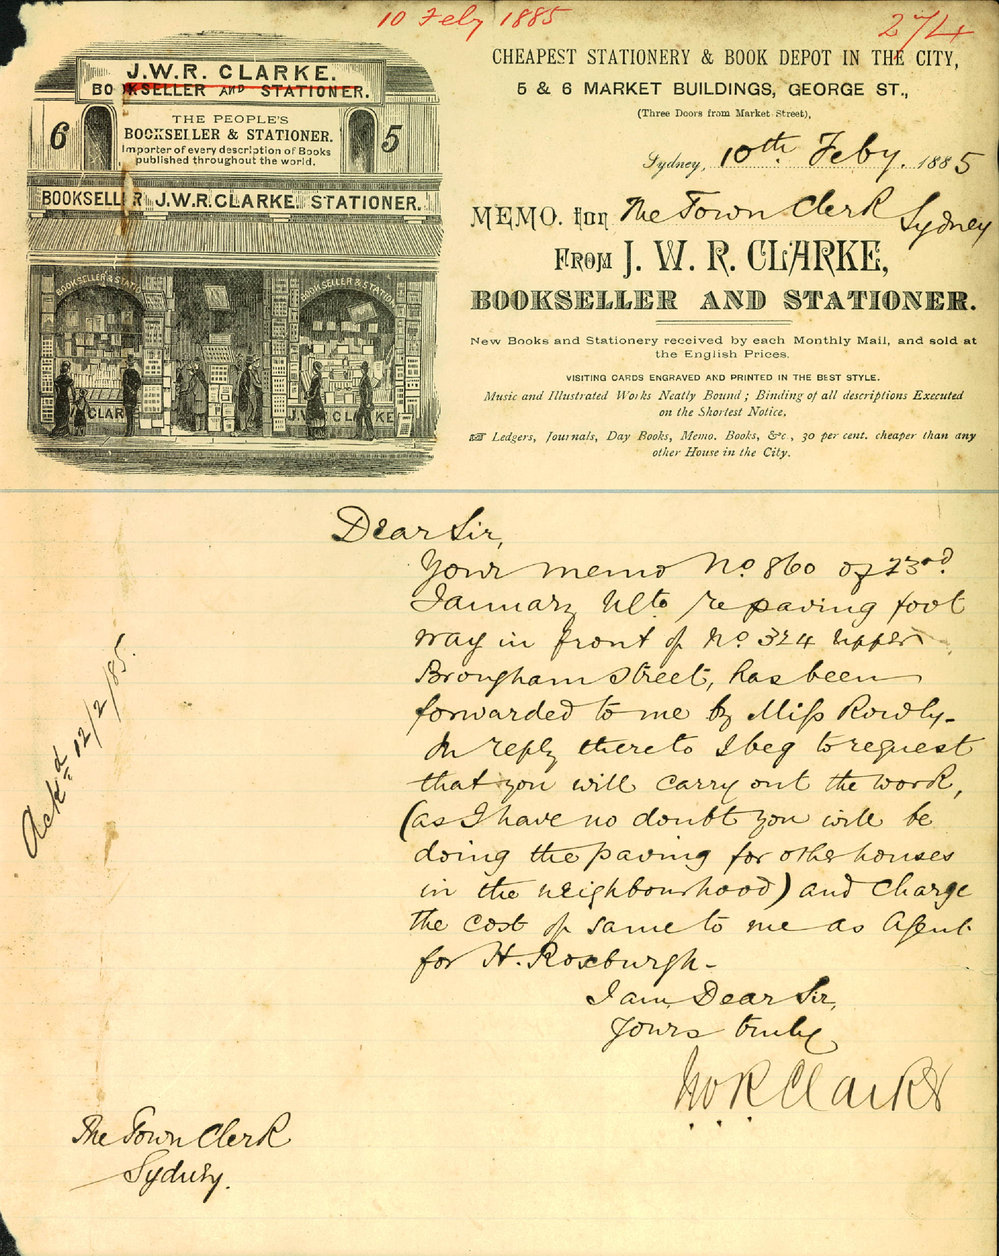 10 Feby 1885
274
J.W.R. CLARKE.
BOOKSELLER AND STATIONER.
6
THE PEOPLE'S
BOOKSELLER & STATIONER.
Importer of every description of Books
published throughout the world.
5
BOOKSELLER J.W.R. CLARKE. STATIONER.
BOOKSELLER & STATIO
BOOKSELLER & STATION
CLARK
J.W CLARKE
CHEAPEST STATIONERY & BOOK DEPOT IN THE CITY,
5 & 6 MARKET BUILDINGS, GEORGE ST.,
(Three Doors from Market Street),
Sydney, 10th Feby. 1885
MEMO. for The Town Clerk Sydney
FROM J. W. R. CLARKE,
BOOKSELLER AND STATIONER.
New Books and Stationery received by each Monthly Mail, and sold at
the English Prices.
VISITING CARDS ENGRAVED AND PRINTED IN THE BEST STYLE.
Music and Illustrated Works Neatly Bound; Binding of all descriptions Executed
on the Shortest Notice,
☞ Ledgers, Journals, Day Books, Memo. Books, &c., 30 per cent. cheaper than any
other House in the City.
Dear Sir,
Your memo No. 860 of 23rd.
January Ulto re paving foot
way in front of No. 324 Upper
Brougham Street, has been
forwarded to me by Miss Rowdly-
In reply thereto I beg to request
that you will carry out the work,
(as I have no doubt you will be
doing the paving for other houses
in the neighbourhood) and charge
the cost of same to me as Agent
for H. Roxburgh-
I am, Dear Sir,
Yours truly
JWRClarke
Ackd 12/2/85.
The Town Clerk
Sydney.